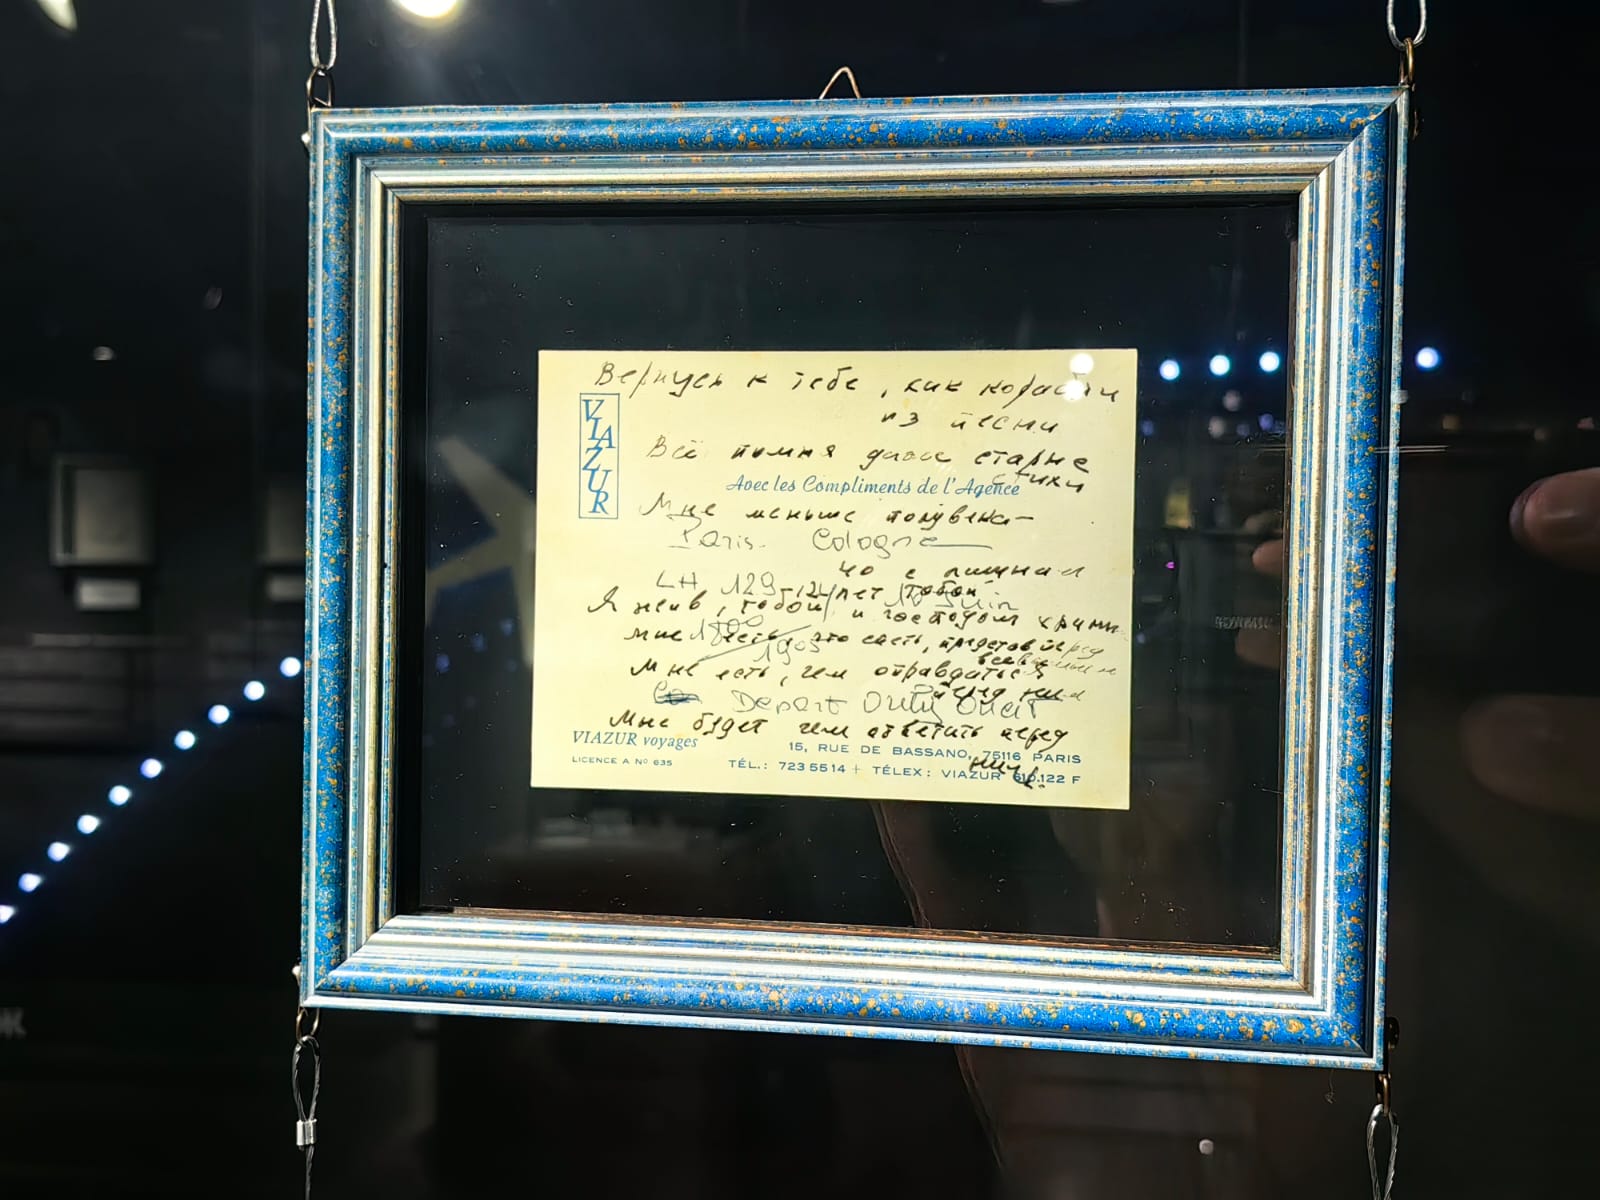 Вернусь к тебе, как корабли
из песни
Всё помня даже старые
стихи
VIAZUR
Avec les Compliments de l'Agence
Мне меньше полувека —
Paris. Cologne
40 с лишним
LH 129
лет тобой
Я жив, тобой и господом храним
10 Juin
1800
1905
Мне есть, что спеть, представ перед
всевышним
Мне есть, чем оправдаться
перед ним
Depart
Мне будет чем ответить перед
ним.
VIAZUR voyages
LICENCE A Nº 635
15, RUE DE BASSANO, 75116 PARIS
TÉL.: 723 55 14 + TÉLEX: VIAZUR 610.122 F